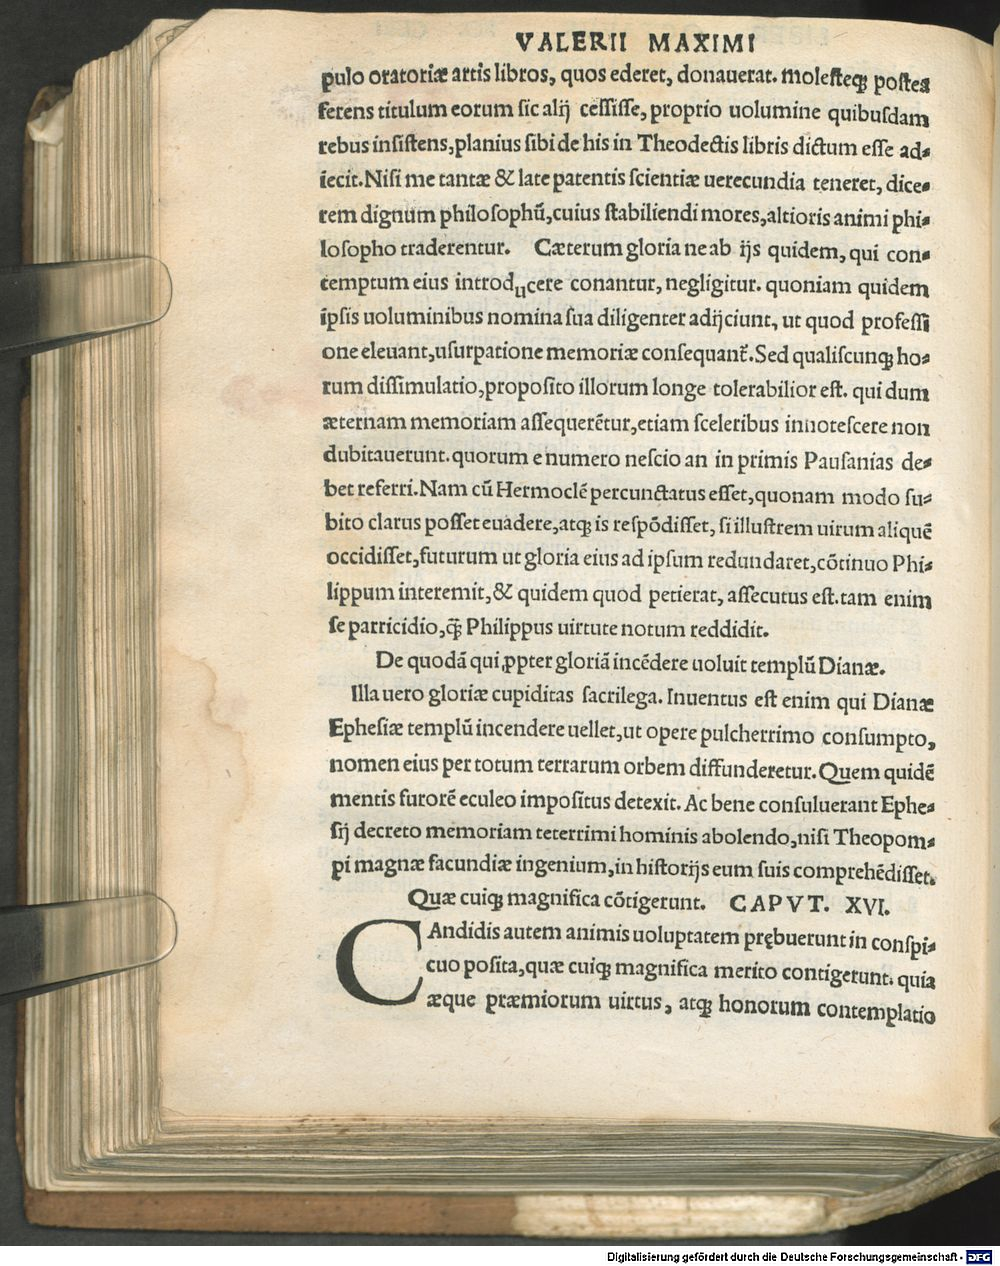 VALERII MAXIMI
pulo oratoriæ artis libros, quos ederet, donauerat. molesteqꝫ postea
ferens titulum eorum sic alij cessisse, proprio uolumine quibusdam
rebus insistens, planius sibi de his in Theodectis libris dictum esse ad⸗
iecit. Nisi me tantæ & late patentis scientiæ uerecundia teneret, dice⸗
rem dignum philosophū, cuius stabiliendi mores, altioris animi phi⸗
losopho traderentur. Cæterum gloria ne ab ijs quidem, qui con⸗
temptum eius introducere conantur, negligitur. quoniam quidem
ipsis uoluminibus nomina sua diligenter adijciunt, ut quod professi
one eleuant, usurpatione memoriæ consequant᷑. Sed qualiscunqꝫ ho⸗
rum dissimulatio, proposito illorum longe tolerabilior est. qui dum
æternam memoriam assequerētur, etiam sceleribus innotescere non
dubitauerunt. quorum e numero nescio an in primis Pausanias de⸗
bet referri. Nam cū Hermoclē percunctatus esset, quonam modo su⸗
bito clarus posset euadere, atqꝫ is respōdisset, si illustrem uirum aliquē
occidisset, futurum ut gloria eius ad ipsum redundaret, cōtinuo Phi⸗
lippum interemit, & quidem quod petierat, assecutus est. tam enim
se parricidio, q̄ꝫ Philippus uirtute notum reddidit.
De quodā qui ꝓpter gloriā incēdere uoluit templū Dianæ.
Illa uero gloriæ cupiditas sacrilega. Inuentus est enim qui Dianæ
Ephesiæ templū incendere uellet, ut opere pulcherrimo consumpto,
nomen eius per totum terrarum orbem diffunderetur. Quem quidē
mentis furorē eculeo impositus detexit. Ac bene consuluerant Ephe⸗
sij decreto memoriam teterrimi hominis abolendo, nisi Theopom⸗
pi magnæ facundiæ ingenium, in historijs eum suis comprehēdisset.
Quæ cuiqꝫ magnifica cōtigerunt. CAPVT. XVI.
CAndidis autem animis uoluptatem prębuerunt in conspi⸗
cuo posita, quæ cuiqꝫ magnifica merito contigerunt. quia
æque præmiorum uirtus, atqꝫ honorum contemplatio
Digitalisierung gefördert durch die Deutsche Forschungsgemeinschaft - DFG